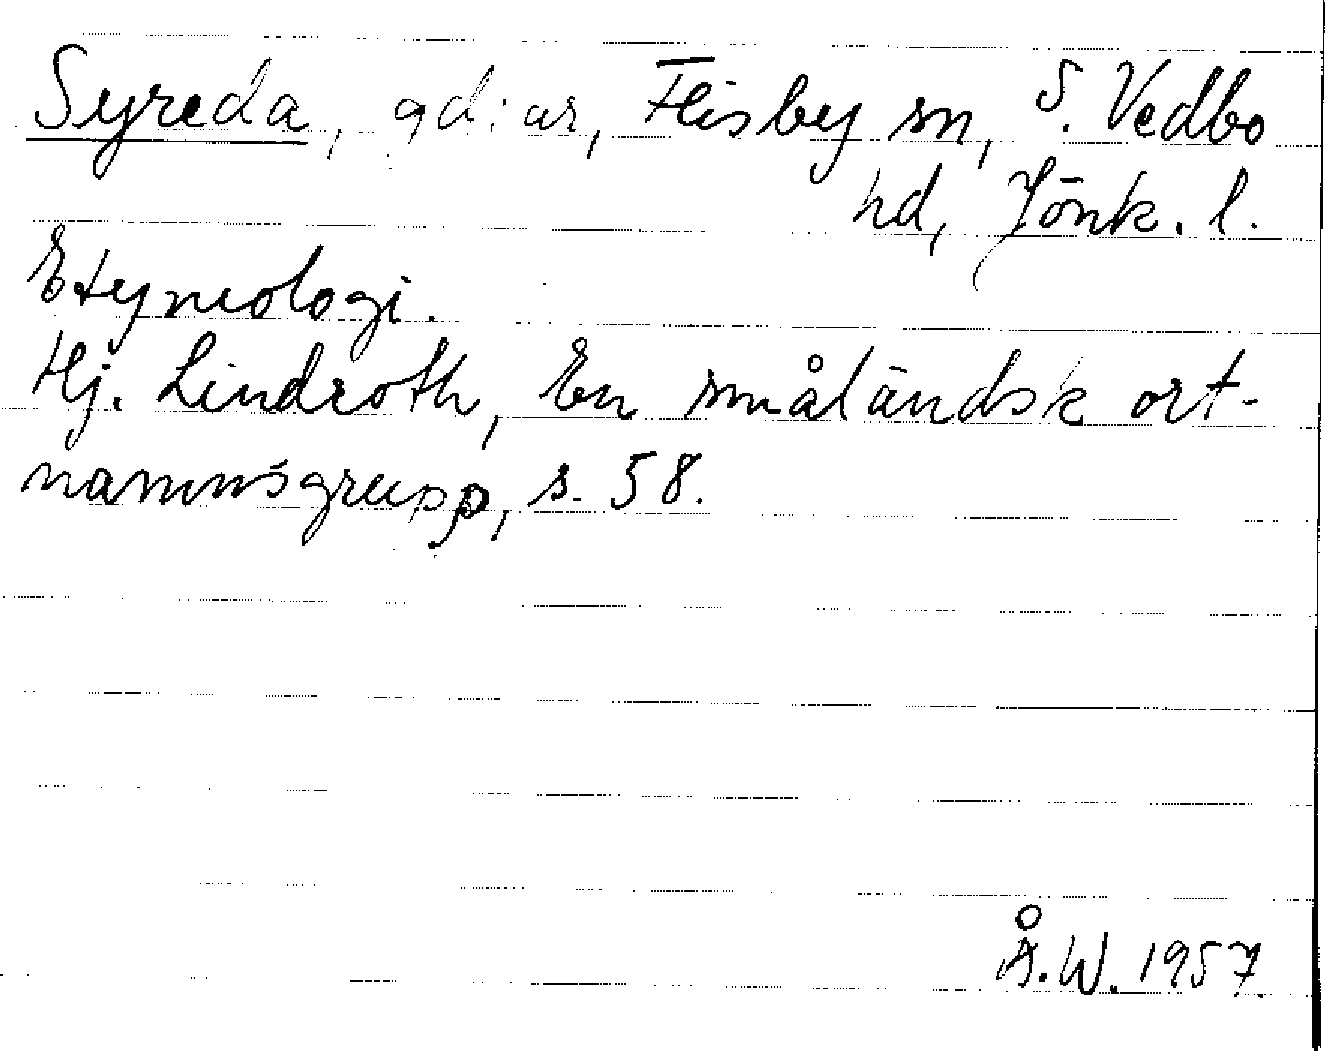 Syreda, gd:ar, Flisby sn, S. Vedbo
hd, Jönk. l.
Etymologi.
Hj. Lindroth, En småländsk ort-
namnsgrupp, s. 58.
Å.W. 1957.